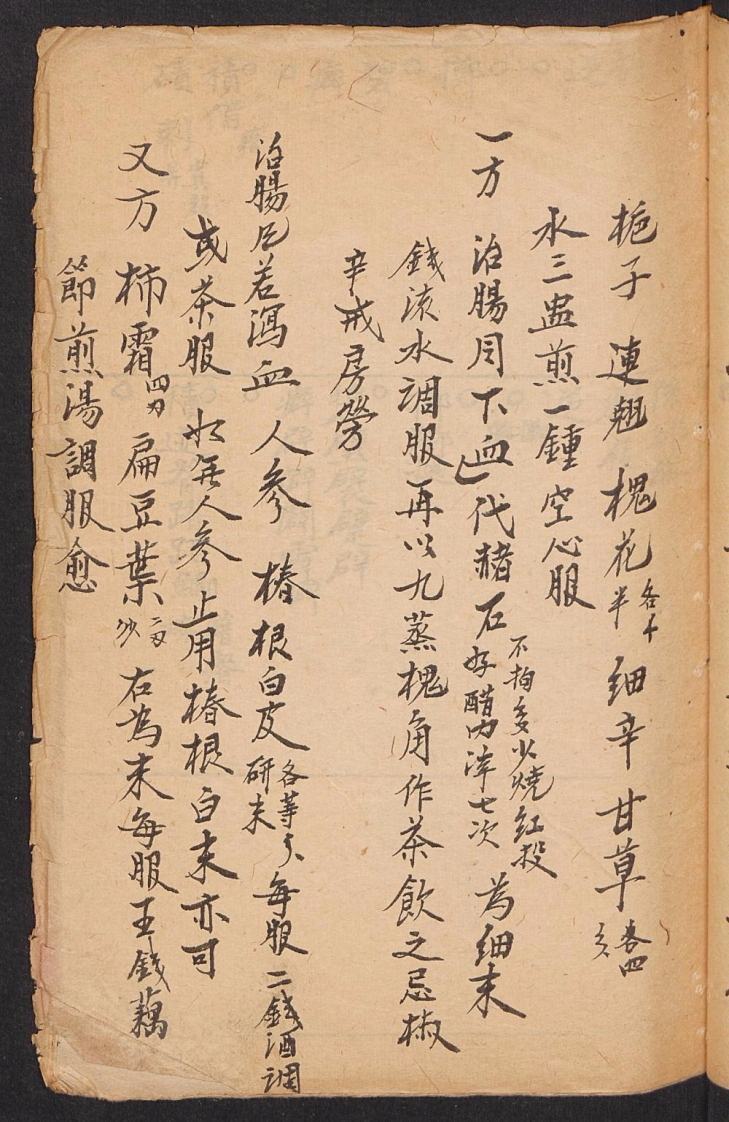 梔子 連翹 槐花各半 細辛 甘草各四
水三盅煎一鍾空心服
一方 治腸風下血 代赭石不拘多少火燒紅投好醋內淬七次 為細末
錢滾水調服再以九蒸槐角作茶飲之忌椒
辛戒房勞
治腸風若瀉血 人參 椿根白皮各等分研末 每服二錢酒調
或茶服 如無人參止用椿根白末亦可
又方 柿霜四 扁豆葉二 右為末每服五錢藕
節煎湯調服愈